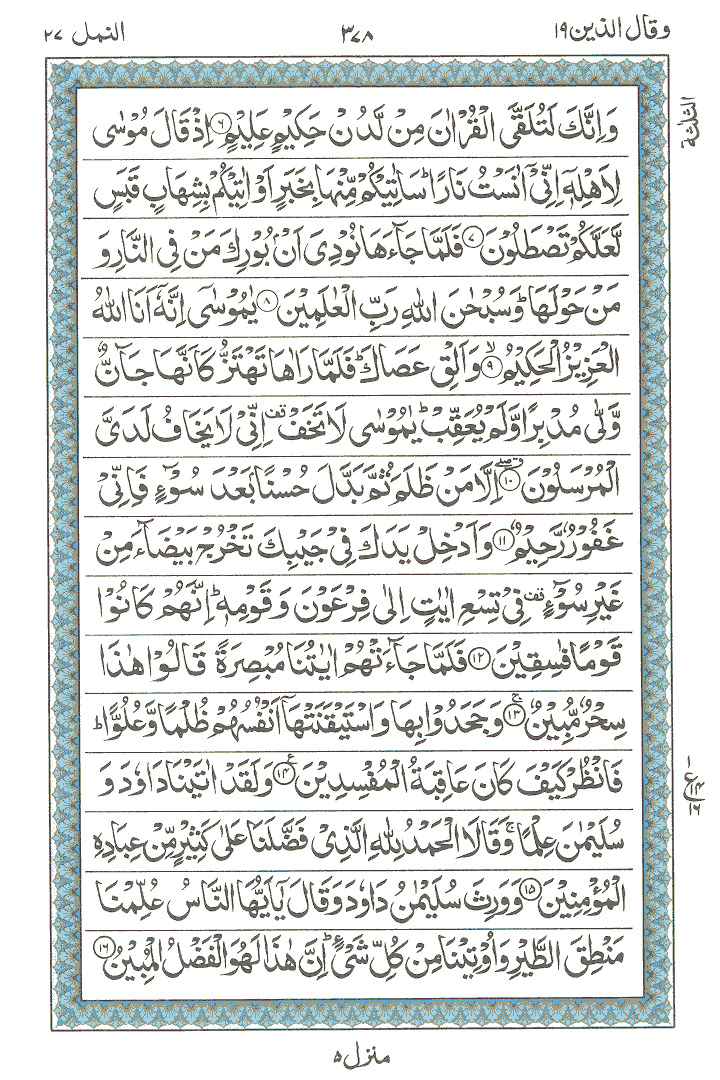 وقال الذین ١٩
٣٧٨
النمل ٢٧
وَاِنَّكَ لَتُلَقَّى الْقُرْاٰنَ مِنْ لَّدُنْ حَكِیْمٍ عَلِیْمٍ ﴿٦﴾ اِذْ قَالَ مُوْسٰى
لِاَهْلِهٖۤ اِنِّیْۤ اٰنَسْتُ نَارًا ؕ سَاٰتِیْكُمْ مِّنْهَا بِخَبَرٍ اَوْ اٰتِیْكُمْ بِشِهَابٍ قَبَسٍ
لَّعَلَّكُمْ تَصْطَلُوْنَ ﴿٧﴾ فَلَمَّا جَآءَهَا نُوْدِیَ اَنْۢ بُوْرِكَ مَنْ فِی النَّارِ وَ
مَنْ حَوْلَهَا ؕ وَسُبْحٰنَ اللّٰهِ رَبِّ الْعٰلَمِیْنَ ﴿٨﴾ یٰمُوْسٰۤى اِنَّهٗۤ اَنَا اللّٰهُ
الْعَزِیْزُ الْحَكِیْمُ ۙ﴿٩﴾ وَاَلْقِ عَصَاكَ ؕ فَلَمَّا رَاٰهَا تَهْتَزُّ كَاَنَّهَا جَآنٌّ
وَّلّٰى مُدْبِرًا وَّلَمْ یُعَقِّبْ ؕ یٰمُوْسٰى لَا تَخَفْ قف اِنِّیْ لَا یَخَافُ لَدَیَّ
الْمُرْسَلُوْنَ ﴿١٠﴾ اِلَّا مَنْ ظَلَمَ ثُمَّ بَدَّلَ حُسْنًۢا بَعْدَ سُوْٓءٍ فَاِنِّیْ
غَفُوْرٌ رَّحِیْمٌ ﴿١١﴾ وَاَدْخِلْ یَدَكَ فِیْ جَیْبِكَ تَخْرُجْ بَیْضَآءَ مِنْ
غَیْرِ سُوْٓءٍ قف فِیْ تِسْعِ اٰیٰتٍ اِلٰى فِرْعَوْنَ وَقَوْمِهٖ ؕ اِنَّهُمْ كَانُوْا
قَوْمًا فٰسِقِیْنَ ﴿١٢﴾ فَلَمَّا جَآءَتْهُمْ اٰیٰتُنَا مُبْصِرَةً قَالُوْا هٰذَا
سِحْرٌ مُّبِیْنٌ ۚ﴿١٣﴾ وَجَحَدُوْا بِهَا وَاسْتَیْقَنَتْهَاۤ اَنْفُسُهُمْ ظُلْمًا وَّعُلُوًّا ؕ
فَانْظُرْ كَیْفَ كَانَ عَاقِبَةُ الْمُفْسِدِیْنَ ﴿١٤﴾ وَلَقَدْ اٰتَیْنَا دَاوٗدَ وَ
سُلَیْمٰنَ عِلْمًا ۚ وَقَالَا الْحَمْدُ لِلّٰهِ الَّذِیْ فَضَّلَنَا عَلٰى كَثِیْرٍ مِّنْ عِبَادِهِ
الْمُؤْمِنِیْنَ ﴿١٥﴾ وَوَرِثَ سُلَیْمٰنُ دَاوٗدَ وَقَالَ یٰۤاَیُّهَا النَّاسُ عُلِّمْنَا
مَنْطِقَ الطَّیْرِ وَاُوْتِیْنَا مِنْ كُلِّ شَیْءٍ ؕ اِنَّ هٰذَا لَهُوَ الْفَضْلُ الْمُبِیْنُ ﴿١٦﴾
الثلثة
ع
١٤
١٦
منزل ٥